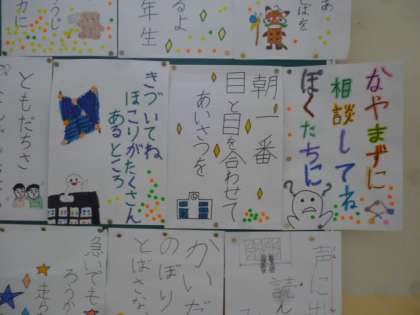 なやまずに
相談してね
ぼくたちに
朝一番
目と目を合わせて
あいさつを
きづいてね
ほこりがたくさん
あるところ
ともだちさ
年生
るよ
かいだ
のぼり
とばさな
急いでも
ろうか
走る
声に出
読ん